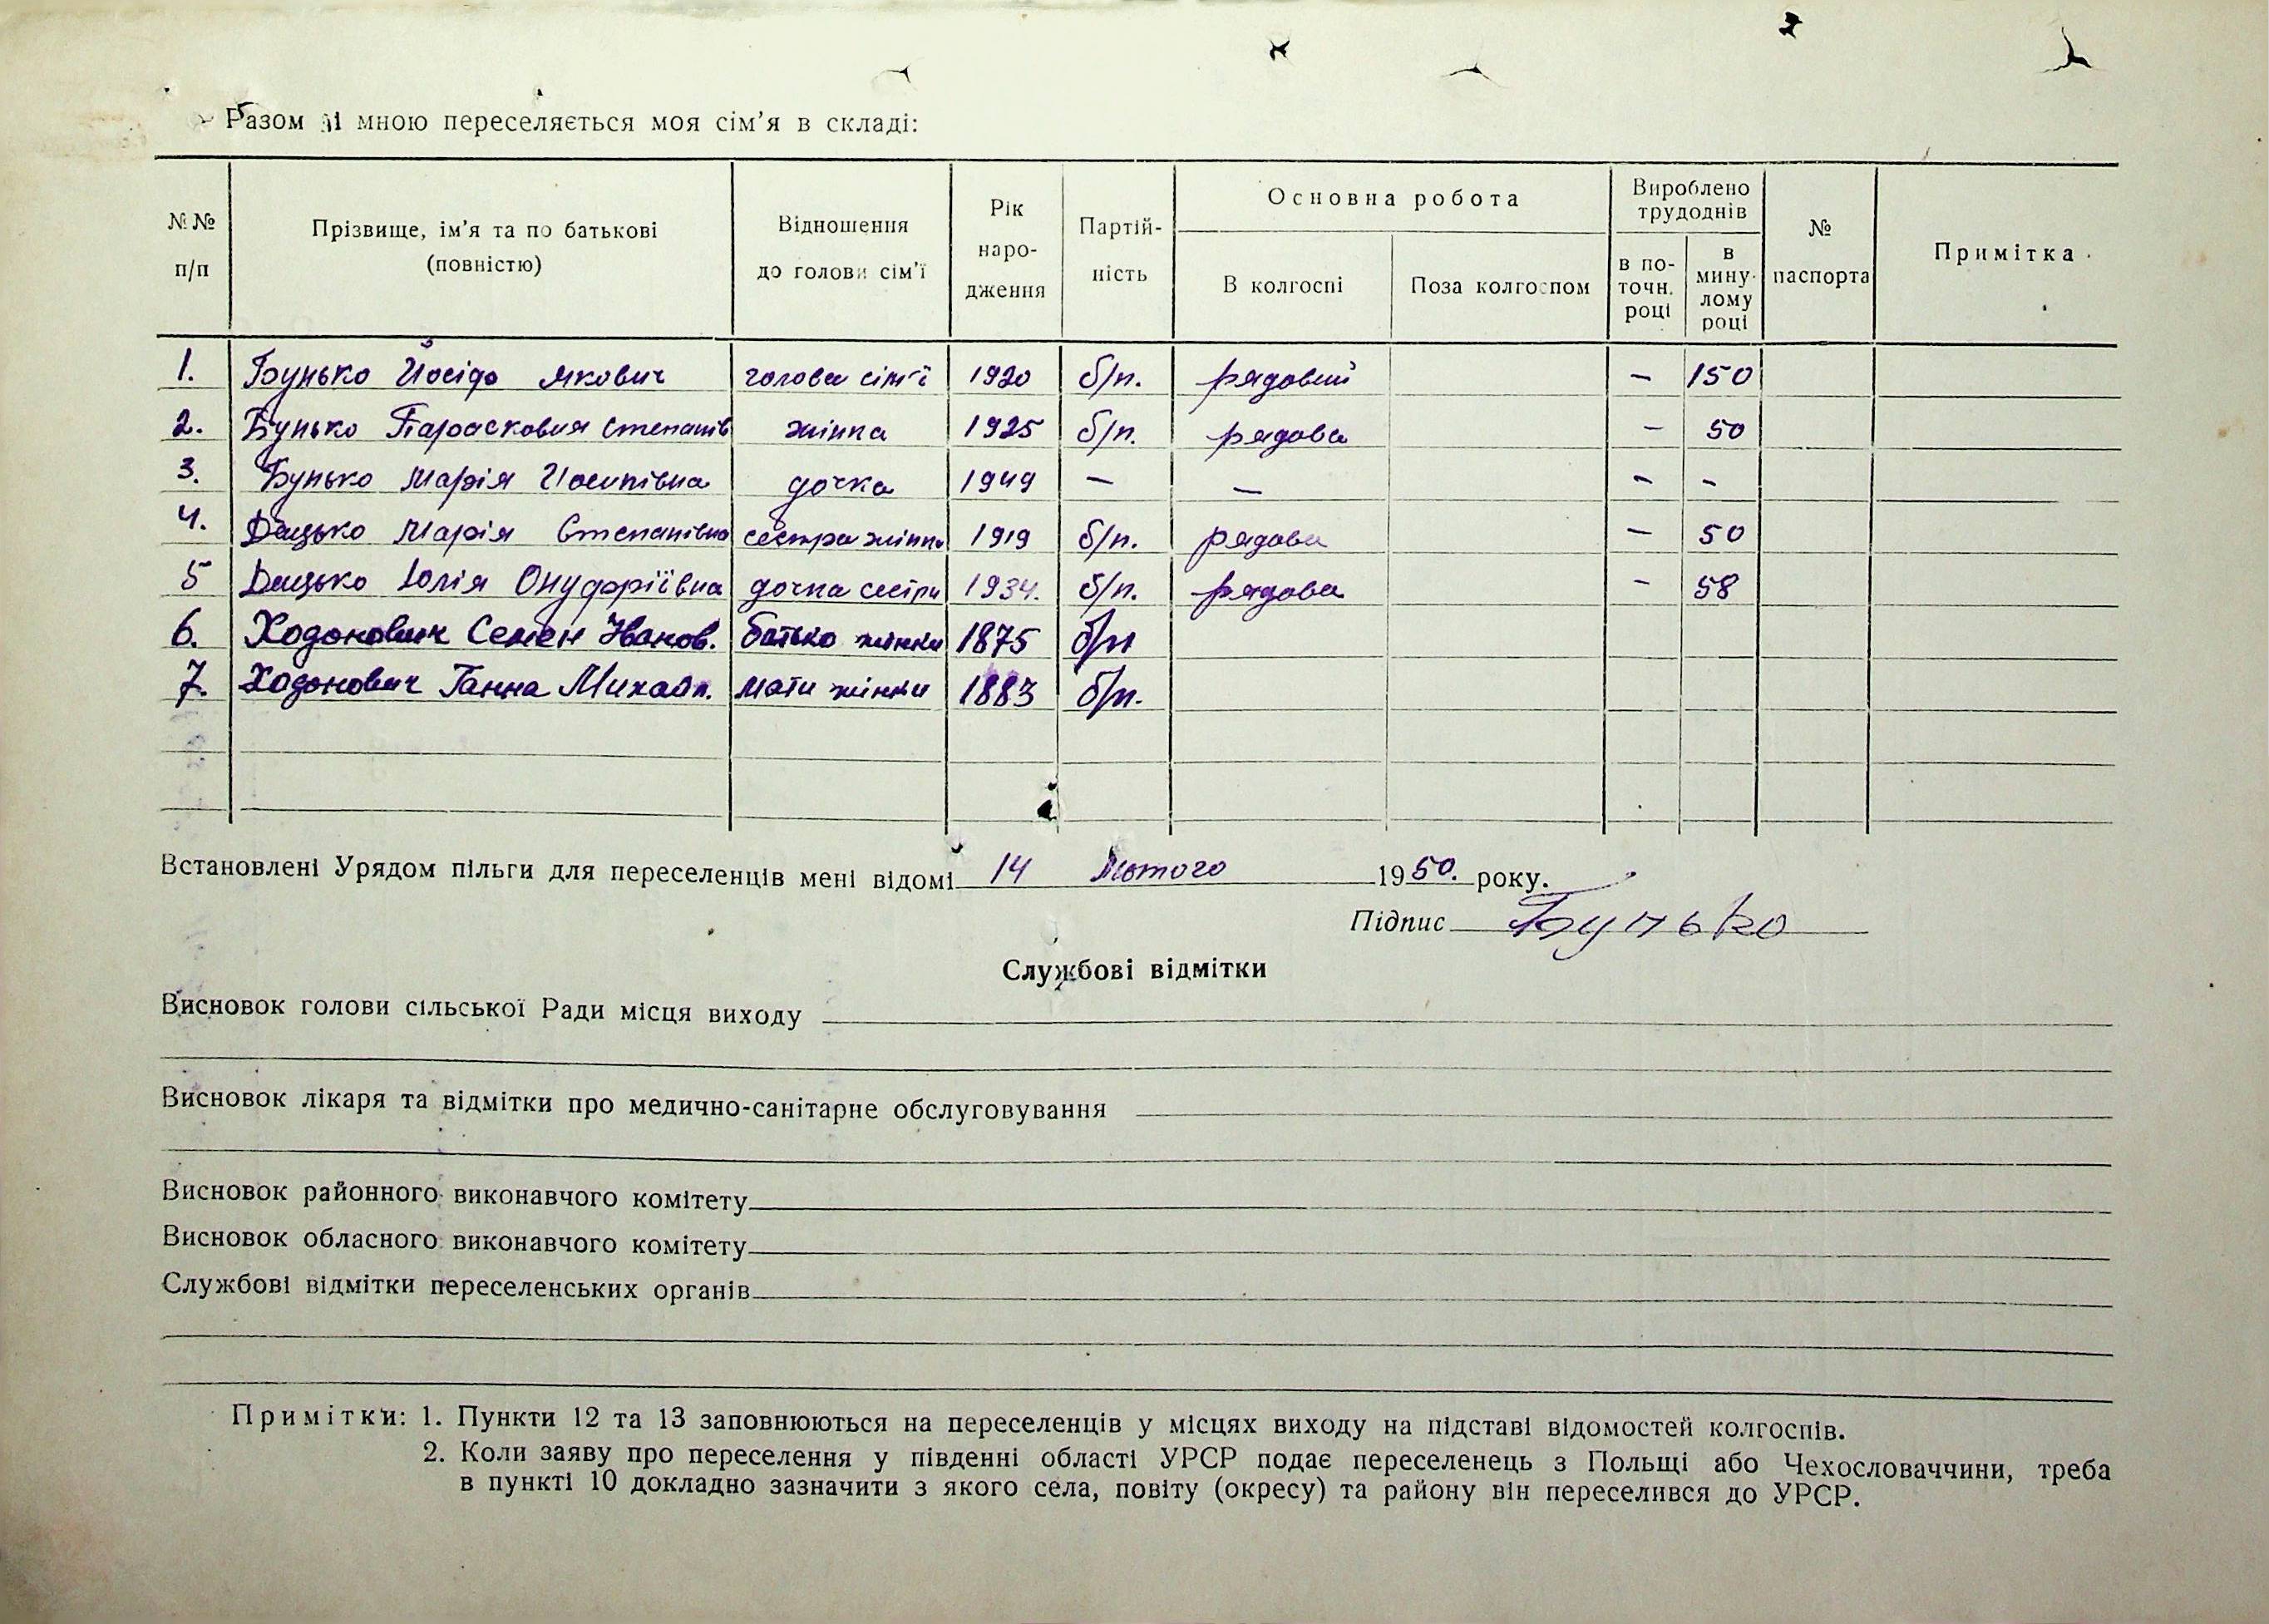 Разом зі мною переселяється моя сім'я в складі:
№№ п/п
Прізвище, ім'я та по батькові (повністю)
Відношення до голови сім'ї
Рік народження
Партійність
Основна робота
В колгоспі
Поза колгоспом
Вироблено трудоднів
в поточн. році
в минулому році
№ паспорта
Примітка
1. Бунько Йосіф Якович голова сім'ї 1920 б/п. рядовий — 150
2. Бунько Парасковия Степанів жінка 1925 б/п. рядова — 50
3. Бунько Марія Йосипівна дочка 1949 — — - -
4. Дацько Марія Степанівна сестра жінки 1919 б/п. рядова — 50
5 Дацько Юлія Онуфріївна дочка сестри 1934. б/п. рядова - 58
6. Ходонович Семен Іванов. батько жінки 1875 б/п
7. Ходонович Ганна Михайл. мати жінки 1883 б/п.
Встановлені Урядом пільги для переселенців мені відомі 14 Лютого 1950. року.
Підпис Бунько
Службові відмітки
Висновок голови сільської Ради місця виходу
Висновок лікаря та відмітки про медично-санітарне обслуговування
Висновок районного виконавчого комітету
Висновок обласного виконавчого комітету
Службові відмітки переселенських органів
Примітки: 1. Пункти 12 та 13 заповнюються на переселенців у місцях виходу на підставі відомостей колгоспів.
2. Коли заяву про переселення у південні області УРСР подає переселенець з Польщі або Чехословаччини, треба
в пункті 10 докладно зазначити з якого села, повіту (окресу) та району він переселився до УРСР.